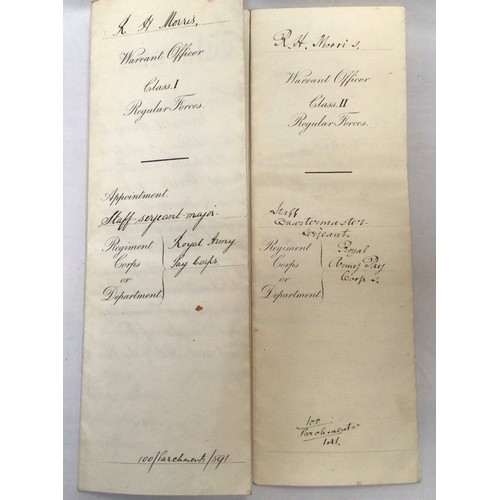 R H Morris,
Warrant Officer
Class I
Regular Forces.
Appointment
Staff-serjeant-major.
Regiment
Corps
or
Department
Royal Army
Pay Corps
100/Parchments/591.
R. H. Morris.
Warrant Officer
Class II
Regular Forces.
Staff
Quartermaster
Serjeant.
Regiment
Corps
or
Department
Royal
Army Pay
Corps.
100
Parchments